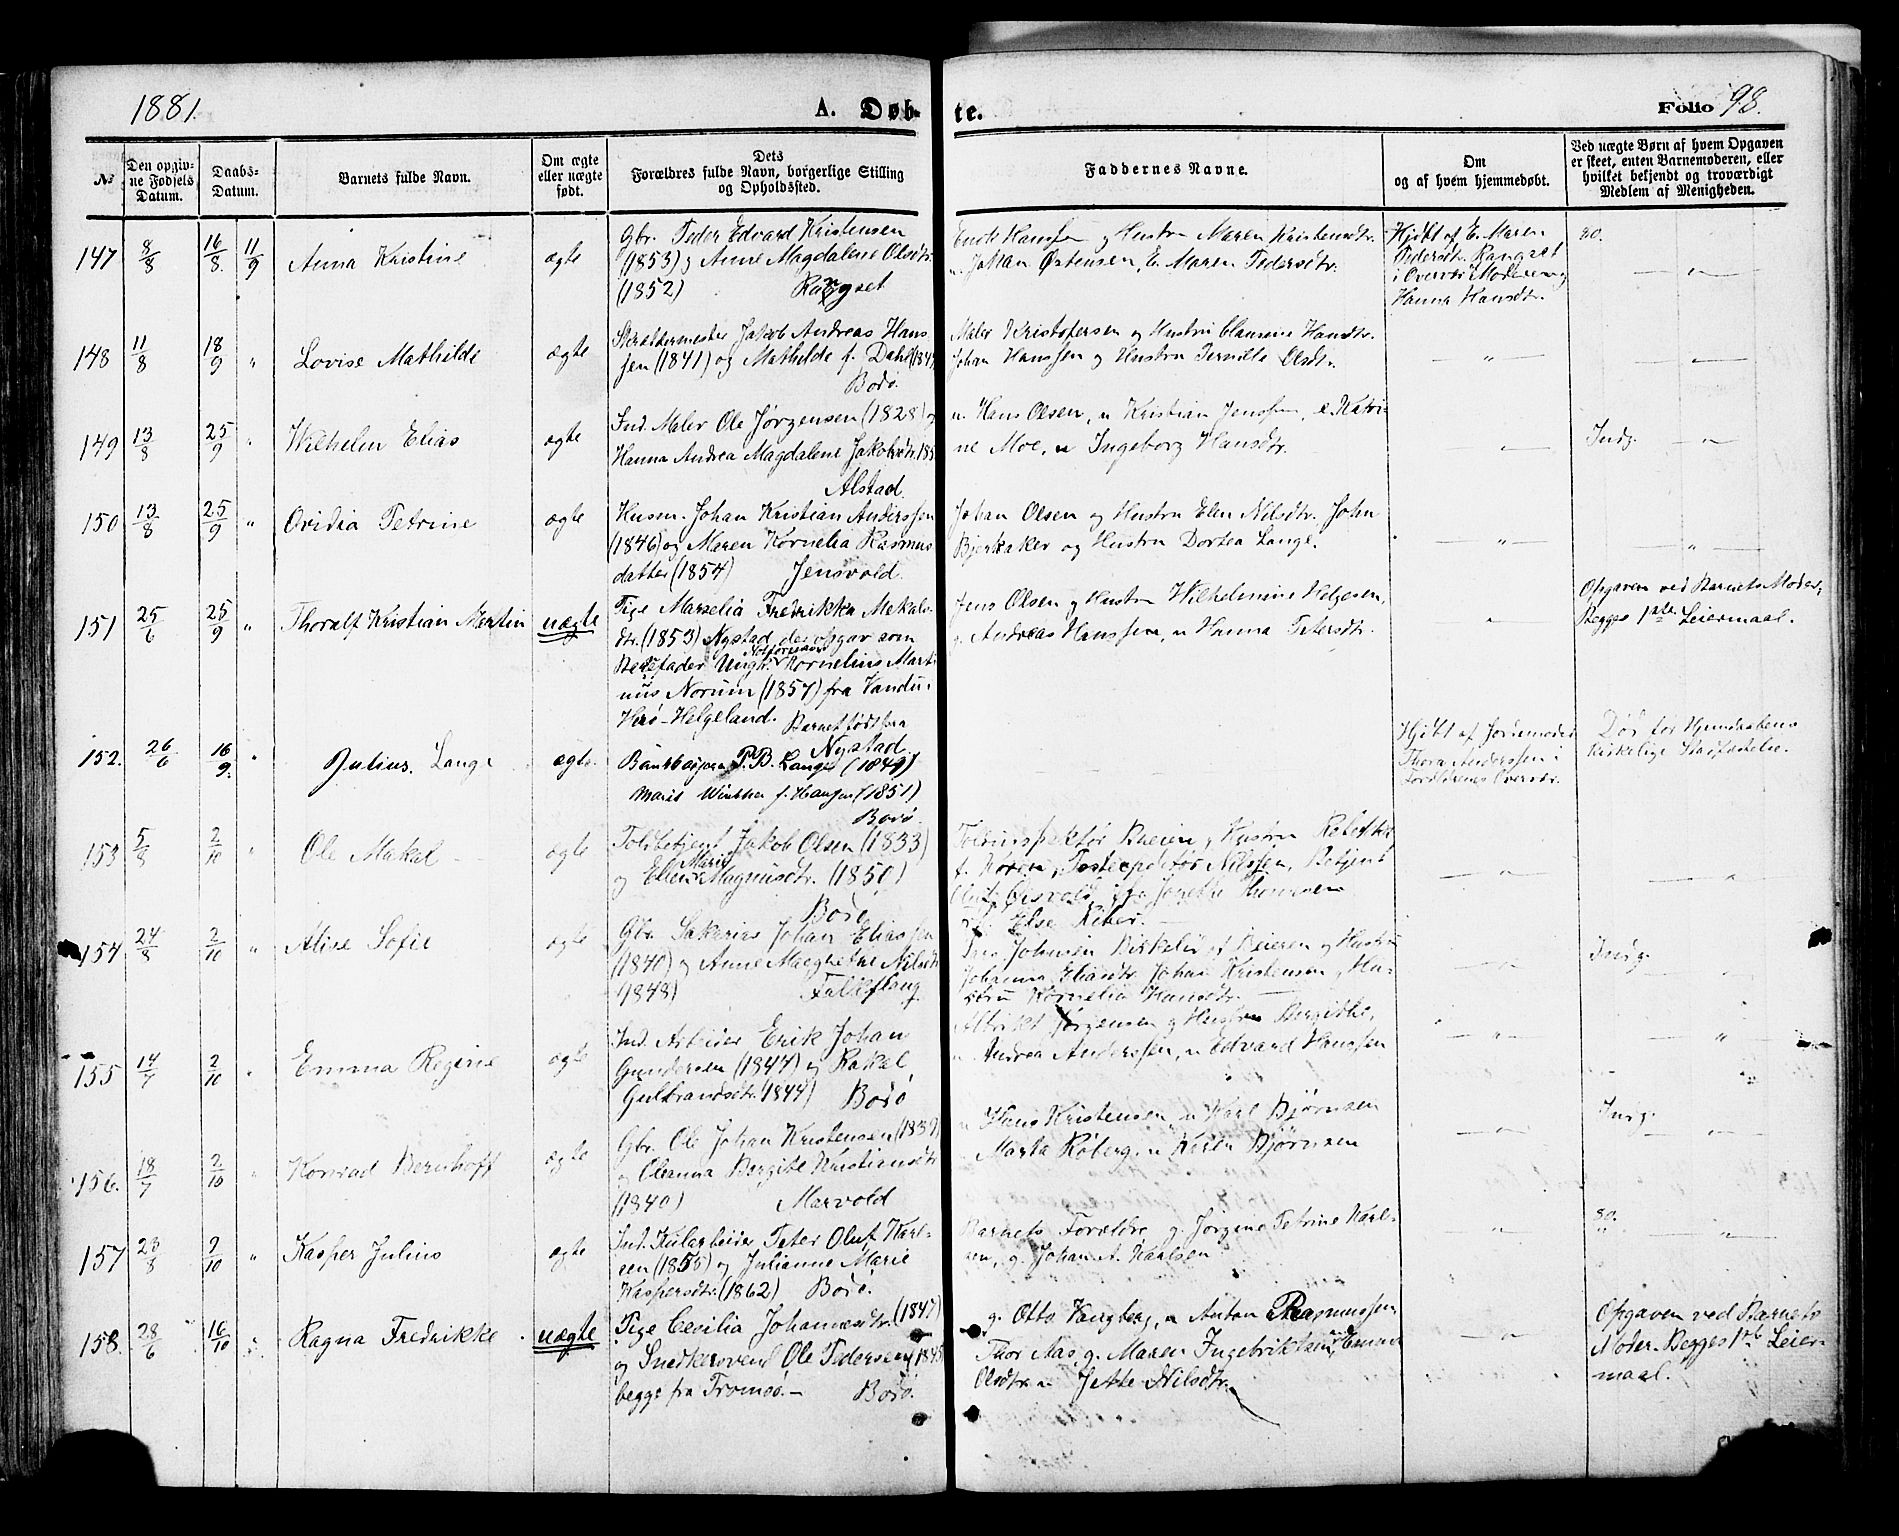 1881.
A. Døb-
te.
Folio 98.
№
Den opgiv-
ne Fødsels
Datum.
Daabs-
Datum.
Barnets fulde Navn.
Om ægte
eller uægte
født.
Dets
Forældres fulde Navn, borgerlige Stilling
og Opholdssted.
Faddernes Navne.
Om
og af hvem hjemmedøbt.
Ved uægte Børn af hvem Opgaven
er skeet, enten Barnemoderen, eller
hvilket bekjendt og troværdigt
Medlem af Menigheden.
147 8/8 16/8 11/9 Anna Kristine ægte
Gbr. Peder Edvard Kristensen
(1853) og Anne Magdalene Olsdtr.
(1852) Rangset
Hanssen og Hustru Maren Kristensdtr.
Johan Østensen, E. Maren Pedersdtr.
Hjdbt af E. Maren
Pedersdtr. Rangset
i Overvær Moderen og
Hanna Hansdtr.
148 11/8 18/9 " Lovise Mathilde ægte
Skræddermester Jakob Andreas Hans-
sen (1841) og Mathilde f. Dahl
Bodø.
Maler Kristofersen og Hustru Clausine Hansdtr.
Johan Hanssen og Hustru Pernille Olsdtr.
149 13/8 25/9 " Wilhelm Elias ægte
Ind. Maler Ole Jørgensen (1828) og
Hanna Andrea Magdalene Jakobsdtr.
Alstad.
u. Hans Olsen, u. Kristian Jenssen, e. Katri-
ne Moe, u Ingeborg Hansdtr.
Indg.
150 13/8 25/9 " Ovidia Petrine ægte
Husm. Johan Kristian Anderssen
(1846) og Maren Kornelia Rasmus
datter (1854) Jensvold.
Johan Olsen og Hustru Elen Nilsdtr. John
Bjerkaker og Hustru Dortea Lange.
151 25/6 25/9 " Thoralf Kristian Martin uægte
Pige Marselia Fredrikka Mekals-
dtr. (1853) Nystad, der opgav som
Barnefader Ungk. Kornelius Marti-
nus Norum (1857) fra Vandv.
Herø-Helgeland. Barnet født paa
Nystad
Jens Olsen og Hustru Wilhelmine Helgesen,
g. Andreas Hanssen, u. Hanna Petersdtr.
Opgaven ved Barnets Moder,
Begges 1ste Leiermaal.
152. 26/6 16/9. " Julius. Lange ægte.
P. B. Lange (1849)
Marie Winther f. Hansen (1851)
Bodø.
Hjdbt af Jordemoder
Thora Anderssen i
Forældrenes Overvær.
Død før Hjemmedaabens
kirkelige Stadfæstelse.
153 5/8 2/10 " Ole Mekal ægte
Toldbetjent Jakob Olsen (1833)
og Elen Marie Magnusdtr. (1850)
Bodø
f. Koren, Postexpeditør Nilssen, Betjent
Else Riber.
154 24/8 2/10 " Alise Sofie ægte
Gbr. Sakarias Johan Eliassen
(1840) og Anne Margrethe Nilsdtr
(1848) Falkflaug
Jens Johnsen Birkeli af Beieren og Hustru
Johanna Eliasdtr. Johan Kristensen, Hu-
stru Kornelia Hansdtr.
Indg.
155 14/7 2/10 " Emma Regine ægte
Ind. Arbeider Erik Johan
Gundersen (1844) og Rakel
Gulbrandsdtr. 1844) Bodø
Albrikt Jørgensen og Hustru Bergithe,
u. Andrea Anderssen, u. Edvard Hanssen
156. 18/7 2/10 " Konrad Bernhoff ægte
Gbr. Ole Johan Kristensen (1839)
og Oleanna Bergite Kristiansdtr
(1840) Marvold
u Hans Kristensen, u Karl Bjørnsen
Marta Roberg, u. Karen Bjørnsen
Indg.
157 23/8 9/10 " Kasper Julius ægte
Ind. Kularbeider Peter Oluf Karl-
sen (1855) og Julianne Marie
Kaspersdtr. (1862) Bodø.
Barnets Forældre g. Jørgine Petrine Karl-
sen, g. Johan A. Karlsen
do.
158. 28/6 16/10 Ragna Fredrikke uægte
Pige Cecilia Johannesdtr. (1847)
og Snedkersvend Ole Pedersen (1845
begge fra Tromsø.- Bodø.
g. Otto Vangberg, u. Anton Rasmussen,
Thor Aas, g. Maren Ingebriktsen, Emma
Olsdtr. u. Jette Nilsdtr.
Opgaven ved Barnets
Moder. Begges 1ste Leier-
maal.